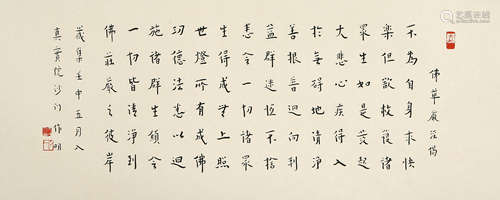 佛華嚴經偈
不為自身求快
樂但欲救護諸
眾生如是發起
大悲心疾得入
於無礙地清淨
善根普迴向利
益群迷恒不捨
悉令一切諸眾
生得成無上照
世燈所有成佛
功德法悉以迴
施諸群生願令
一切皆清淨到
佛莊嚴之彼岸
歲集壬申五月入
真實院沙門